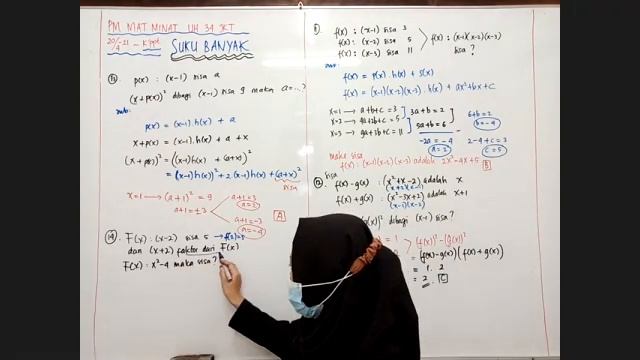 PM MAT MINAT UH 34 JKT
20/4-21 - K.ppt
SUKU BANYAK
⑬ p(x) : (x-1) sisa a
(x+p(x))² dibagi (x-1) sisa 9 maka a=...?
p(x) = (x-1).h(x) + a
x+p(x) = (x-1).h(x) + a + x
(x+p(x))² = ((x-1)h(x) + (a+x))²
= (x-1)h(x)² + 2(x-1)h(x) + (a+x)²
sisa
x=1 → (a+1)² = 9
a+1 = ±3
a+1 = 3
a=2
a+1 = -3
a=-4
A
⑭. F(x) : (x-2) sisa 5 → f(2)=5
dan (x+2) faktor dari F(x)
F(x) : x²-4 maka sisa?
f(x) : (x-1) sisa 3
f(x) : (x-2) sisa 5
f(x) : (x-3) sisa 11
f(x) : (x-1)(x-2)(x-3)
sisa?
f(x) = p(x).h(x) + s(x)
f(x) = (x-1)(x-2)(x-3).h(x) + ax²+bx+c
x=1 → a+b+c = 3
x=2 → 4a+2b+c = 5
x=3 → 9a+3b+c = 11
3a+b = 2
5a+b = 6
-2a = -4
a=2
6+b=2
b=-4
2-4+c=3
c=5
maka sisa
f(x) : (x-1)(x-2)(x-3) adalah 2x²-4x+5 B
⑫ sisa
f(x)-g(x) : (x²+x-2) adalah x
(x+2)(x-1)
f(x)+g(x) : adalah x+1
dibagi (x-1) sisa?
(f(x))² - (g(x))²
= (f(x)-g(x))(f(x)+g(x))
= 1 . 2
= 2 C